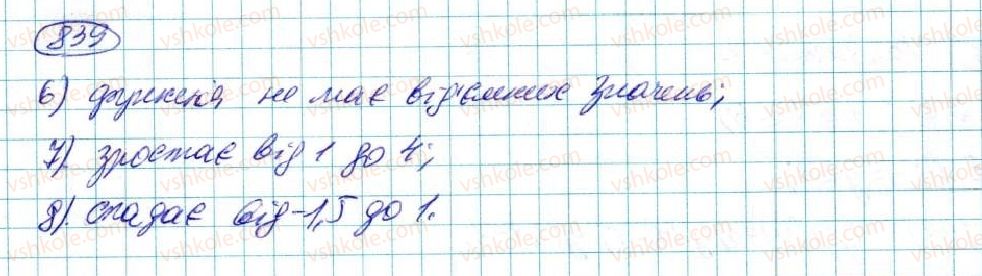 839
6) функція не має від'ємних значень;
7). зростає від 1 до 4;
8). спадає від -1,5 до 1.